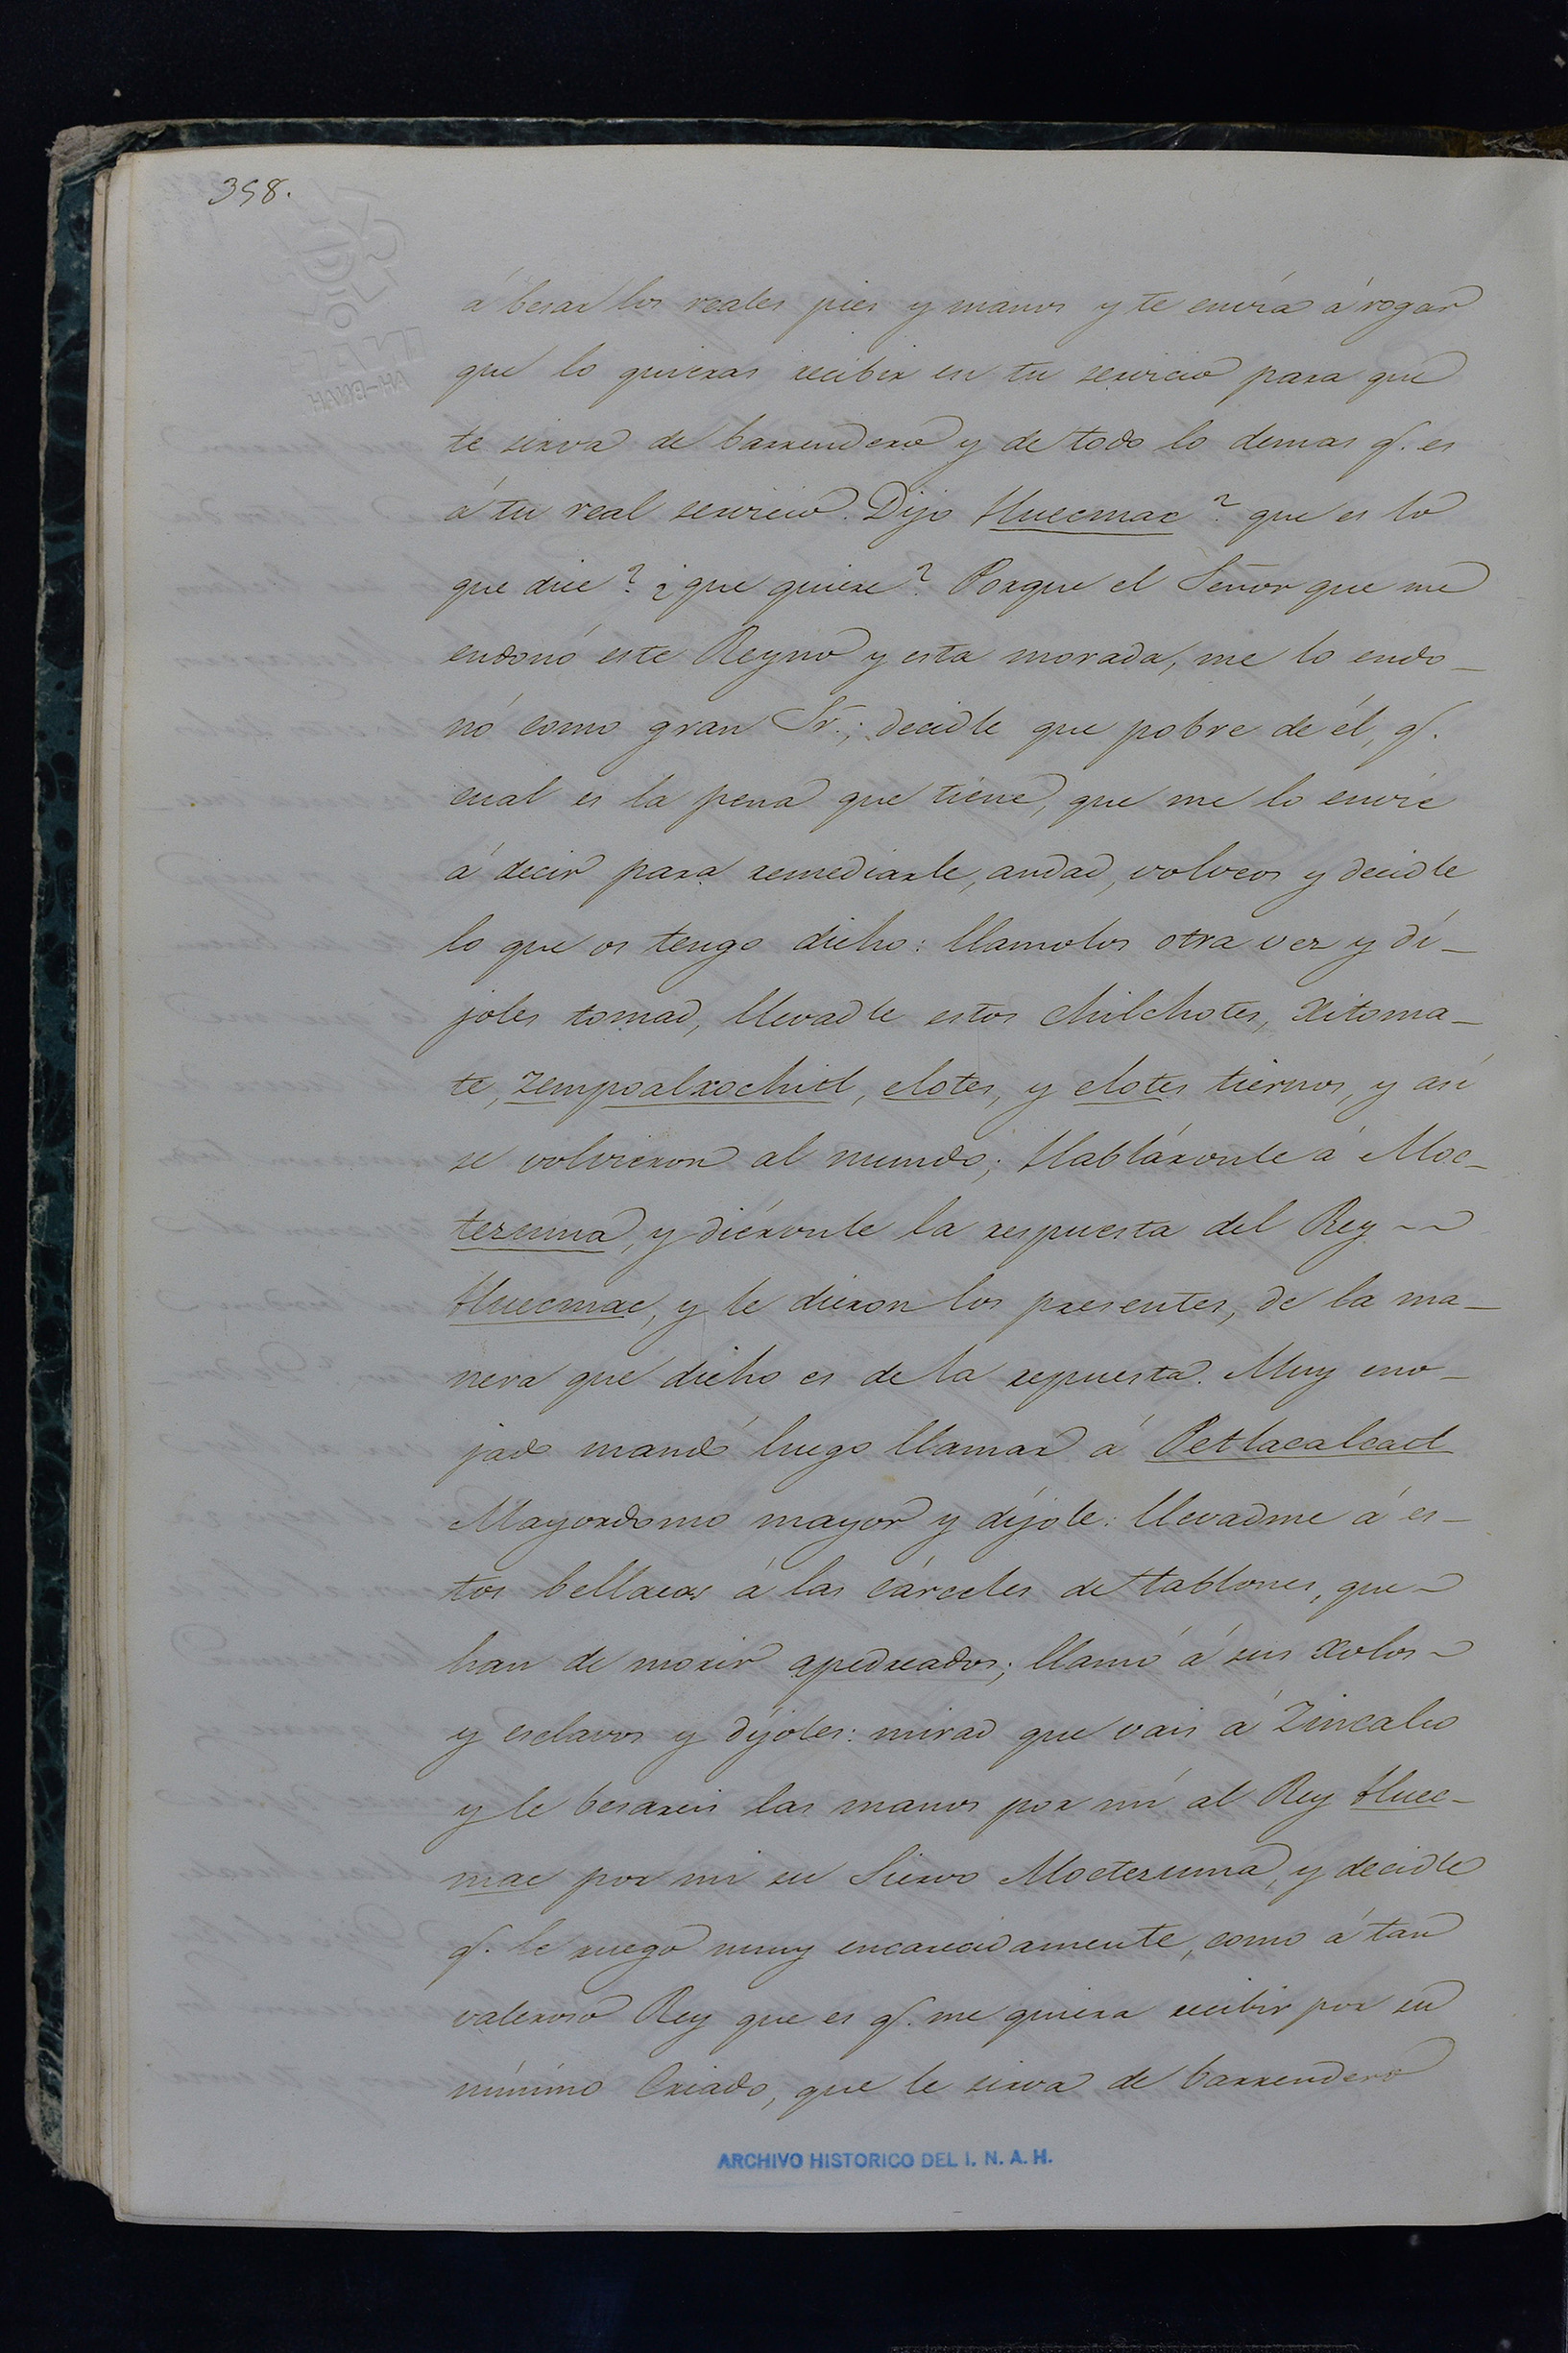 398.
á besar los reales pies y manos y te envía á rogar
que lo quieras recibir en tu servicio para que
te sirva de barrendero y de todo lo demas q.e es
á tu real servicio. Dijo Huecmac? que es lo
que dice? ¿que quiere? Porque el Señor que me
endonó este Reyno y esta morada, me lo endo_
nó como gran Sr.; decidle que pobre de él, q.
cual es la pena que tiene, que me lo envie
á decir para remediarle, andad, volveos y decidle
lo que os tengo dicho: llamolos otra vez y dí_
joles tomad, llevadle estos chilchotes, Xitoma_
te, zempoalxochitl, elotes, y elotes tiernos, y así
se volvieron al mundo; Habláronle á Moc_
tezuma, y diéronle la respuesta del Rey ~~
Huecmac, y le dieron los presentes, de la ma_
nera que dicho es de la repuesta. Muy eno_
jado mandó luego llamar á Petlacalcatl
Mayordomo mayor y díjole: llevadme á es_
tos bellacos á las cárceles de tablones, que ~
han de morir apedreados; llamó á sus Xolos ~
y esclavos y díjoles: mirad que vais á Zincalco
y le besareis las manos por mí al Rey Huec_
mac por mi su Siervo Moctezuma, y decidle
q. le ruego muy encarecidamente, como á tan
valeroso Rey que es q. me quiera recibir por su
mínimo Criado, que le sirva de barrendero
ARCHIVO HISTORICO DEL I. N. A. H.